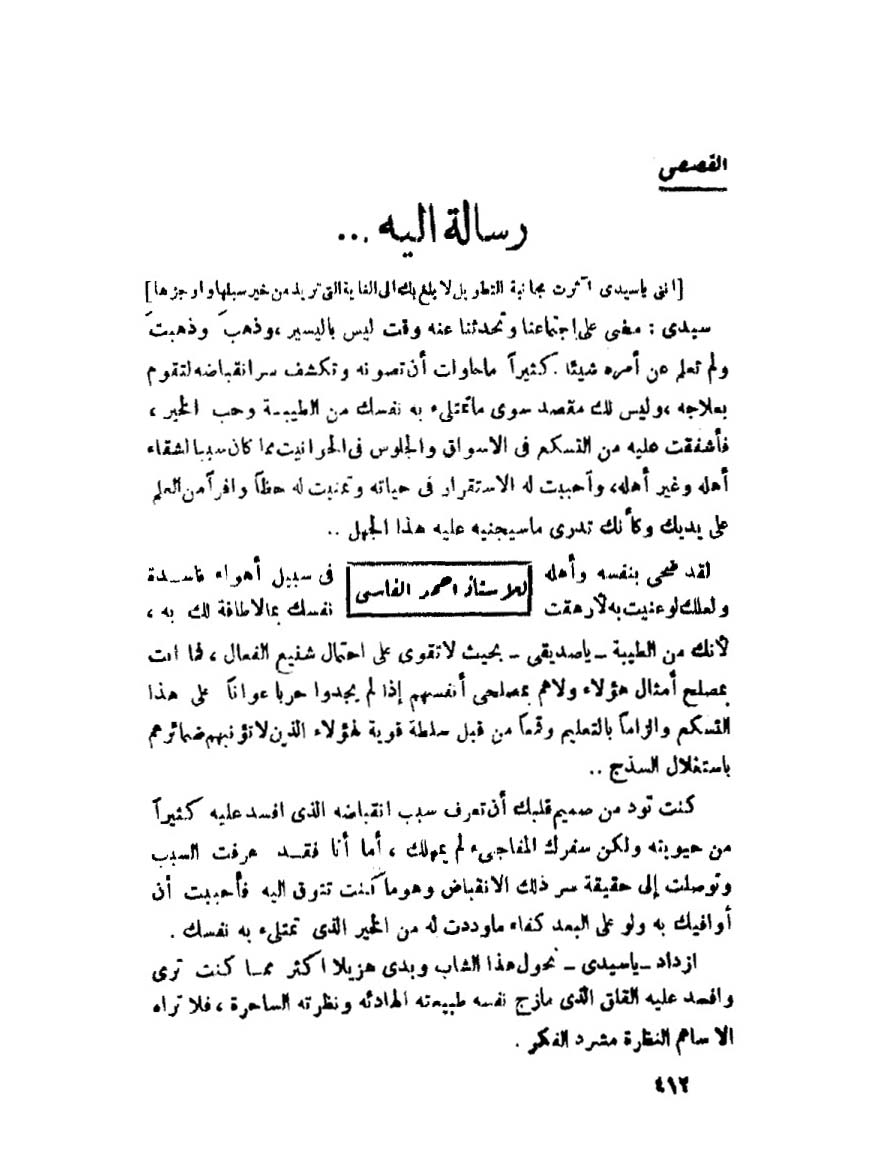 القصصى
رسالة اليه ...
[اننى ياسيدى آثرت مجانبة التطويل لا بلغ بك الى الغاية التى تريد من خير سبلها واوجزها]
سيدى : مضى على إجتماعنا وتحدثنا عنه وقت ليس باليسير ، وذهبَ وذهبتَ
ولم تعلم عن أمره شيئا . كثيراً ماحاولت أن تصونه وتكشف سر انقباضه لتقوم
بعلاجه ، وليس لك مقصد سوى ماتمتلىء به نفسك من الطيبة وحب الخير ،
فأشفقت عليه من التسكم فى الاسواق والجلوس فى الحوانيت مما كان سببا لشقاء
أهله وغير أهله ، وأحببت له الاستقرار فى حياته وتمنيت له حظاً وافراً من العلم
على يديك وكأنك تدرى ماسيجنيه عليه هذا الجهل ..
لقد ضحى بنفسه وأهله فى سبيل أهواء فاسدة
للاستاذ احمد الفاسى
ولعلك لو عنيت به لأرهقت نفسك بمالاطاقة لك به ،
لأنك من الطيبة ـ ياصديقى ـ بحيث لاتقوى على احتمال شفيع الفعال ، فما انت
بمصلح أمثال هؤلاء ولاهم بمصلحى أنفسهم إذا لم يجدوا حربا عواناً على هذا
التسكم والزاماً بالتعليم وقمعاً من قبل سلطة قوية لهؤلاء الذين لاتؤنبهم ضمائرهم
باستغلال السذج ..
كنت تود من صميم قلبك أن تعرف سبب انقباضه الذى افسد عليه كثيراً
من حيويته ولكن سفرك المفاجىء لم يمهلك ، أما أنا فقد عرفت السبب
وتوصلت إلى حقيقة سر ذلك الانقباض وهوما كنت تتوق اليه فأحببت أن
أوافيك به ولو على البعد كفاء ماوددت له من الخير الذى تمتلىء به نفسك .
ازداد ـ ياسيدى ـ نحول هذا الشاب وبدى هزيلا اكثر مما كنت ترى
وافسد عليه القلق الذى مازج نفسه طبيعته الهادئه ونظرته الساحرة ، فلا تراه
الا ساهم النظارة مشرد الفكر .
٤١٢